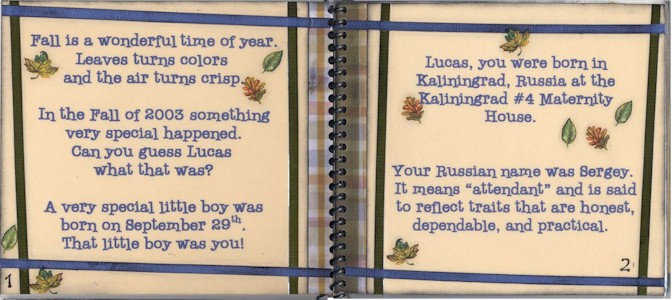 Fall is a wonderful time of year.
Leaves turns colors
and the air turns crisp.
In the Fall of 2003 something
very special happened.
Can you guess Lucas
what that was?
A very special little boy was
born on September 29th.
That little boy was you!
1
Lucas, you were born in
Kaliningrad, Russia at the
Kaliningrad #4 Maternity
House.
Your Russian name was Sergey.
It means “attendant” and is said
to reflect traits that are honest,
dependable, and practical.
2